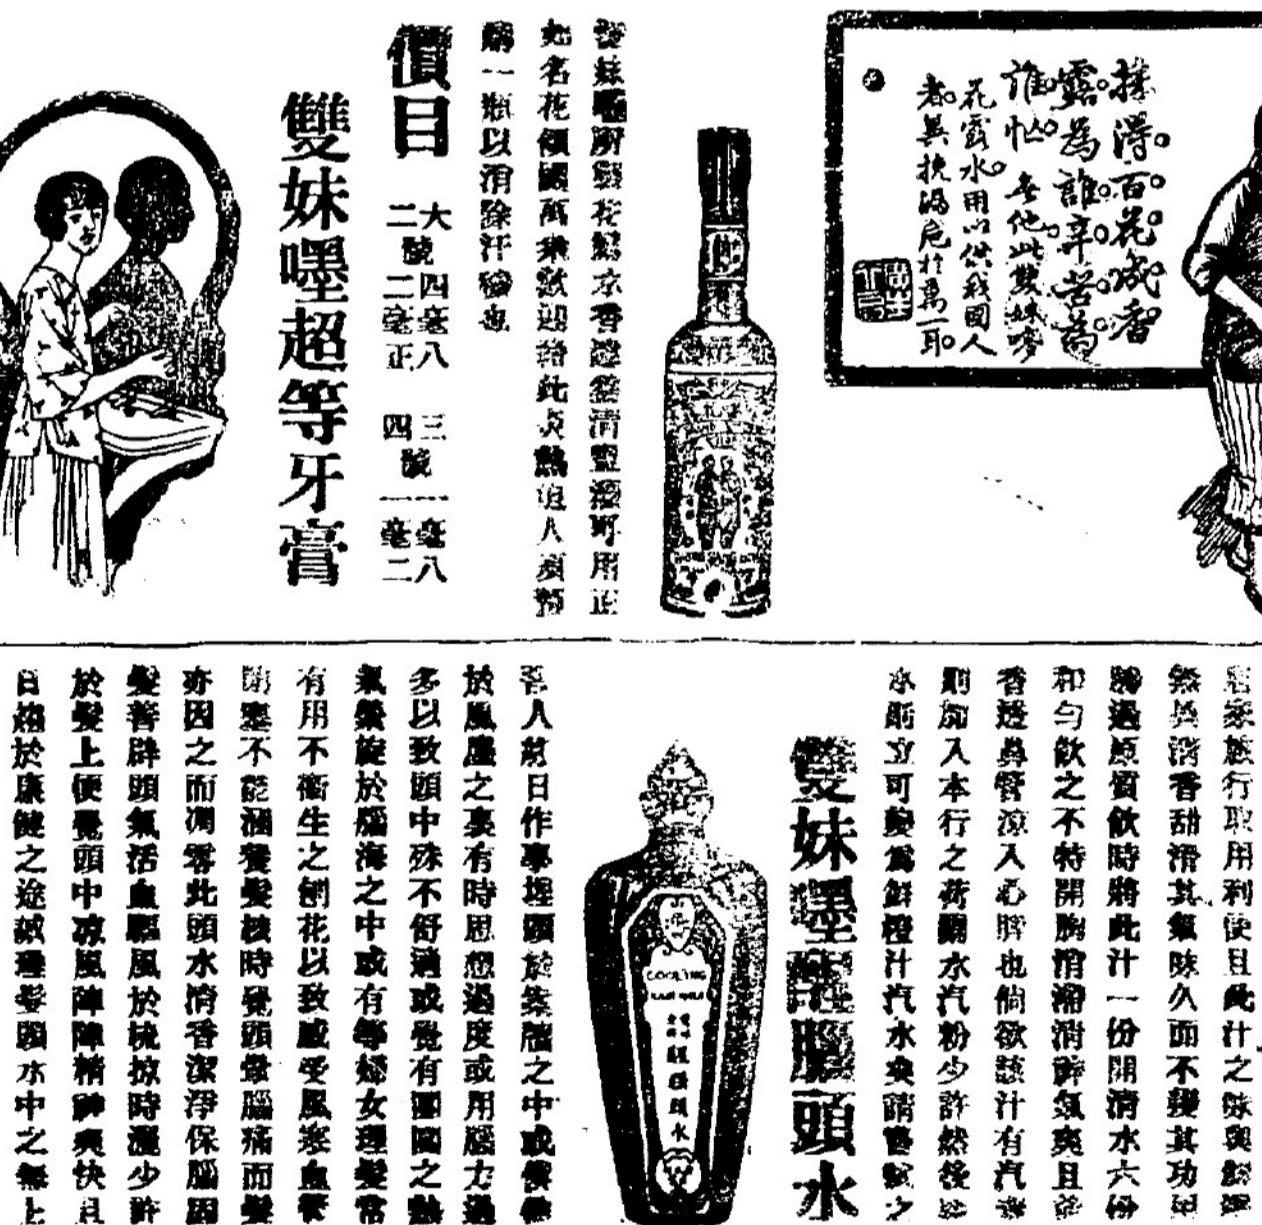 採得百花成香
露為誰辛苦為
誰忙 無他此雙妹嘜
花露水用以供我國人
者冀挽漏卮於萬一耳
雙妹嘜所製花露水香
清 用正
如名花傾國萬眾歡迎 此炎熱 人
購一瓶以消除汗穢也
價目
大四毫八
二號二毫正
三號一毫八
四號一毫二
雙妹嚜超等牙膏
居家旅行取用利便且此汁之味與鮮
無異清香甜滑其氣味久而不變其功用
勝過原質飲時將此汁一份開清水六份
和勻飲之不特開胸消滯消醉氣爽且
香透鼻管涼入心脾也倘欲該汁有汽者
則加入本行之荷蘭水汽粉少許然後
水 立可變為鮮橙汁汽水矣請嘗試之
雙妹嚜醒腦頭水
COOLING
HAIR WASH
醒腦頭水
吾人終日作事埋頭於案牘之中或僕僕
於風塵之裏有時思想過度或用腦力過
多以致頭中殊不舒適或覺有團團之熱
氣縈旋於腦海之中或有等婦女理髮常
有用不衛生之刨花以致感受風寒血管
閉塞不能涵養髮根時覺頭暈腦痛而髮
亦因之而凋零此頭水清香潔淨保腦固
髮善辟頭氣活血驅風於梳掠時灑少許
於髮上便覺頭中涼風陣陣精神爽快且
日臻於康健之途誠理髮頭水中之無上